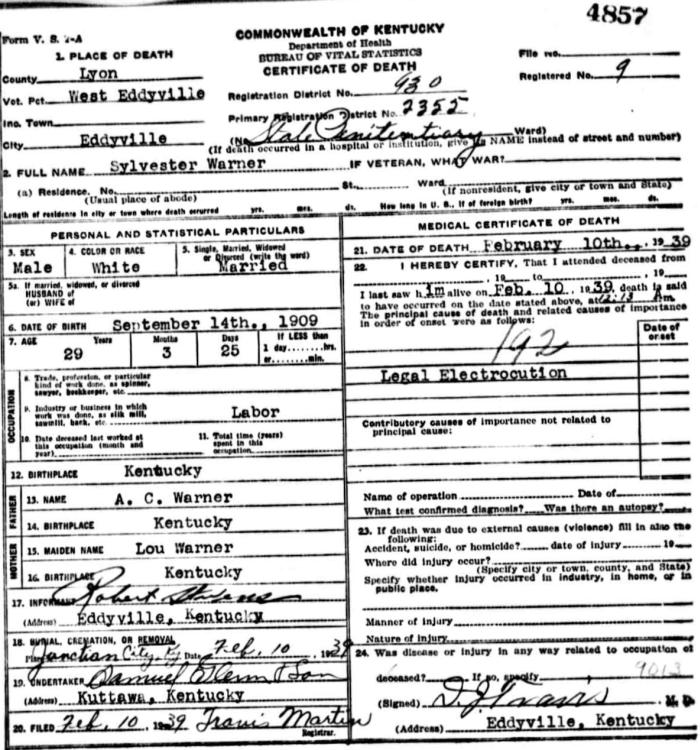 4857
Form V. S. 1-A
COMMONWEALTH OF KENTUCKY
Department of Health
BUREAU OF VITAL STATISTICS
CERTIFICATE OF DEATH
File no.
Registered No. 9
1. PLACE OF DEATH
County Lyon
Vot. Pct. West Eddyville
Registration District No. 930
Inc. Town
Primary Registration District No. 2355
City Eddyville
(No State Penitentiary Ward)
(If death occurred in a hospital or institution, give its NAME instead of street and number)
2. FULL NAME Sylvester Warner IF VETERAN, WHAT WAR?
(a) Residence. No. St. Ward
(Usual place of abode) (If nonresident, give city or town and State)
Length of residence in city or town where death occurred yrs. mos. ds. How long in U. S., if of foreign birth? yrs. mos. ds.
PERSONAL AND STATISTICAL PARTICULARS
3. SEX 4. COLOR OR RACE 5. Single, Married, Widowed
or Divorced (write the word)
Male White Married
5a. If married, widowed, or divorced
HUSBAND of
(or) WIFE of
6. DATE OF BIRTH September 14th., 1909
7. AGE Years Months Days If LESS than
29 3 25 1 day hrs.
or min.
OCCUPATION
8. Trade, profession, or particular
kind of work done, as spinner,
sawyer, bookkeeper, etc.
9. Industry or business in which
work was done, as silk mill,
sawmill, bank, etc. Labor
10. Date deceased last worked at
this occupation (month and
year)
11. Total time (years)
spent in this
occupation
12. BIRTHPLACE Kentucky
FATHER
13. NAME A. C. Warner
14. BIRTHPLACE Kentucky
MOTHER
15. MAIDEN NAME Lou Warner
16. BIRTHPLACE Kentucky
17. INFORMANT Robert Stevens
(Address) Eddyville, Kentucky
18. BURIAL, CREMATION, OR REMOVAL
Place Junction City, Ky Date Feb, 10 1939
19. UNDERTAKER Samuel Glenn & Son
Kuttawa, Kentucky
20. FILED Feb, 10, 1939 Travis Martin
Registrar.
MEDICAL CERTIFICATE OF DEATH
21. DATE OF DEATH February 10th., 1939
22. I HEREBY CERTIFY, That I attended deceased from
, 19 to , 19
I last saw him alive on Feb. 10, 1939, death is said
to have occurred on the date stated above, at 12:13 Am.
The principal cause of death and related causes of importance
in order of onset were as follows:
Date of
onset
192
Legal Electrocution
Contributory causes of importance not related to
principal cause:
Name of operation Date of
What test confirmed diagnosis? Was there an autopsy?
23. If death was due to external causes (violence) fill in also the
following:
Accident, suicide, or homicide? date of injury 19
Where did injury occur?
(Specify city or town, county, and State)
Specify whether injury occurred in industry, in home, or in
public place.
Manner of injury
Nature of injury
24. Was disease or injury in any way related to occupation of
deceased? If so, specify 9013
(Signed) D. J. Travis M. D.
(Address) Eddyville, Kentucky